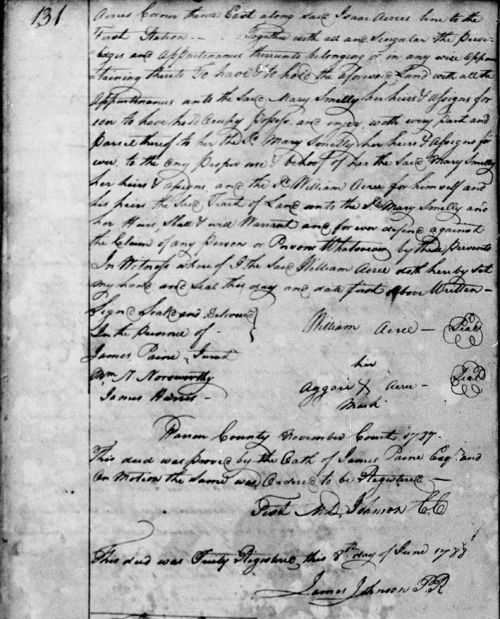 131
Acres Corner thence East along said Isaac Acres line to the
First Station — Together with all and Singular the Privi-
ledges and Appurtinances thereunto belonging or in any wise appur
taining thereto To have & To hold the aforesaid Land with all the
Appurtinances unto the Said Mary Smelly her heirs & assigns for
ever to have hold Occupy Possess and enjoy with every part and
Parcel thereof to her the Sd. Mary Smelly her heirs & assigns for
ever to the only Proper use & behoof of her the Said Mary Smelly
her heirs & assigns and the Sd. William Acree for himself and
his heirs the Said Tract of Land unto the Sd. Mary Smelly and
her Heirs, Shall & will Warrant and for ever defend against
the Claim of any Person or Persons Whatsoever by these Presents
In Witness where of I the Said William Acree doth hereby Set
my hand and Seal this day and date first above Written —
Sign Seald and Delivered
In the Presence of
William Acree — Seal
James Paine Jurat
Wm. N. Norsworthy
James Harris —
her
Aggaie X Acree — Seal
Mark
Warren County November Court 1787.
This deed was proved by the Oath of James Paine Esqr. and
On Motion the Same was Ordered to be Registered —
Test M. D. Johnson C C
This deed was Truly Registered this 8th day of June 1788
James Johnson P. R